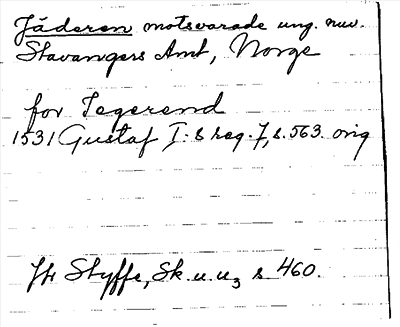 Jäderen motsvarade ung. nuv.
Stavangers Amt, Norge
for Tegerend
1531 Gustaf I:s reg. 7, s. 563. orig
Jfr Styffe, Sk u u3 s 460.